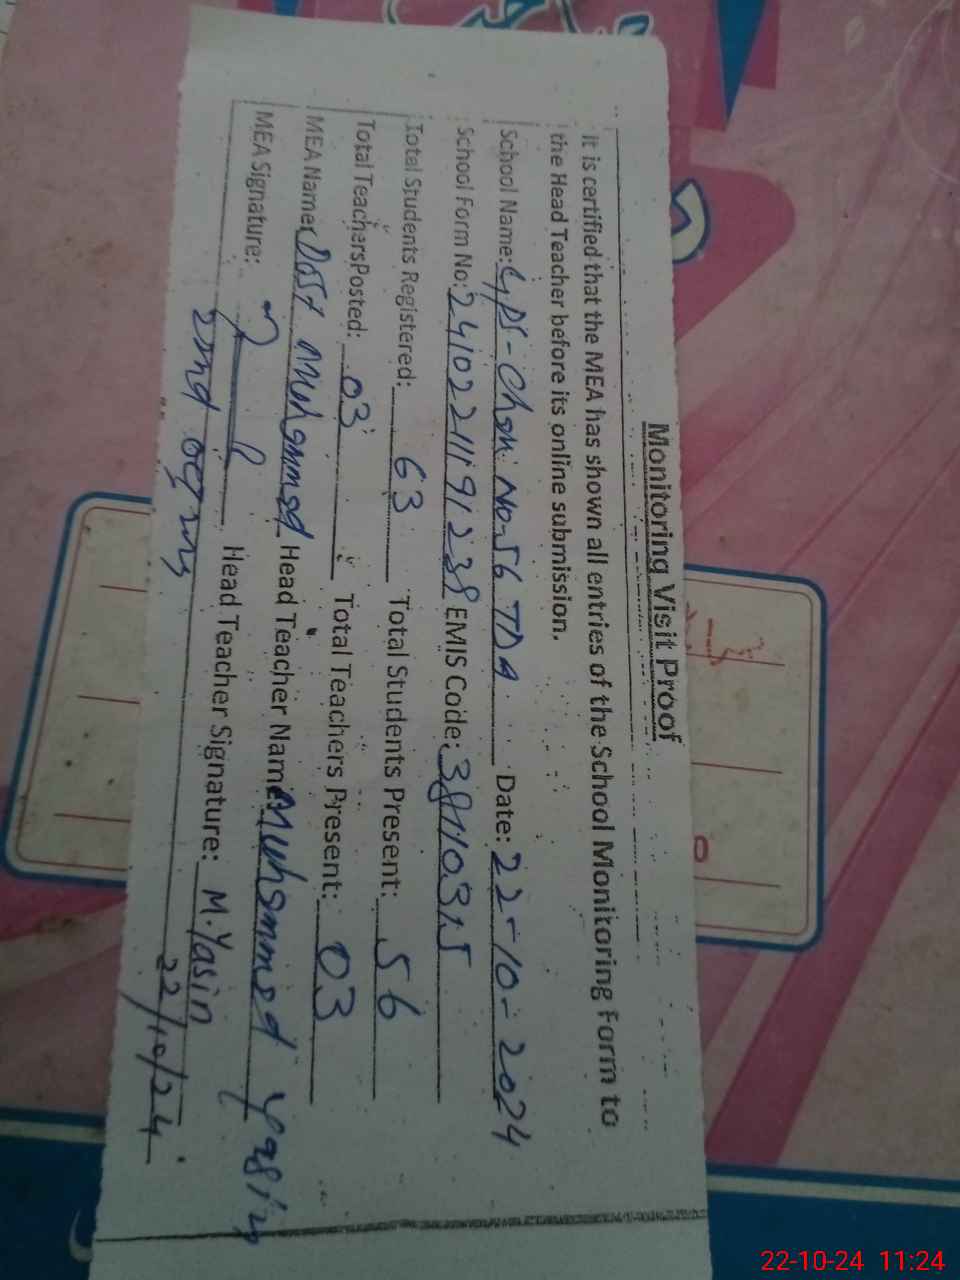 Monitoring Visit Proof
It is certified that the MEA has shown all entries of the School Monitoring Form to
the Head Teacher before its online submission.
School Name: GPS-Chak No-56 TDA Date: 22-10-2024
School Form No: EMIS Code:
Total Students Registered: 63 Total Students Present: 56
Total TeachersPosted: 03 Total Teachers Present: 03
MEA Name: Dost Muhammad Head Teacher Name Muhammad Yasin
MEA Signature: Head Teacher Signature: M.Yasin
22/10/24
22-10-24 11:24